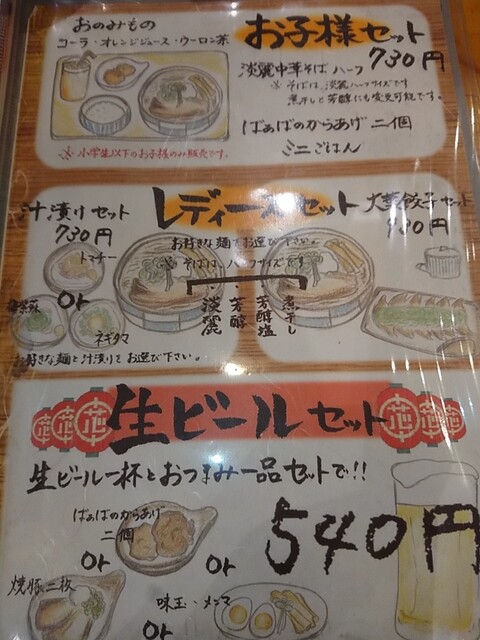 おのみもの
コーラ・オレンジジュース・ウーロン茶
お子様セット
730円
淡麗中華そば ハーフ
※そばは、淡麗ハーフサイズです
煮干しと芳醇にも変更可能です。
ばぁばのからあげ 二個
ミニごはん
※小学生以下のお子様のみ販売です。
レディースセット
汁漬けセット
730円
餃子セット
お好きな麺をお選び下さい。
※そばは、ハーフサイズです
トマチー
or
ネギタマ
淡麗
芳醇
芳醇塩
煮干し
お好きな麺と汁漬けをお選び下さい。
生ビールセット
生ビール一杯とおつまみ一品セットで!!
540円
ばぁばのからあげ
二個
or
or
焼豚二枚
味玉・メンマ
or